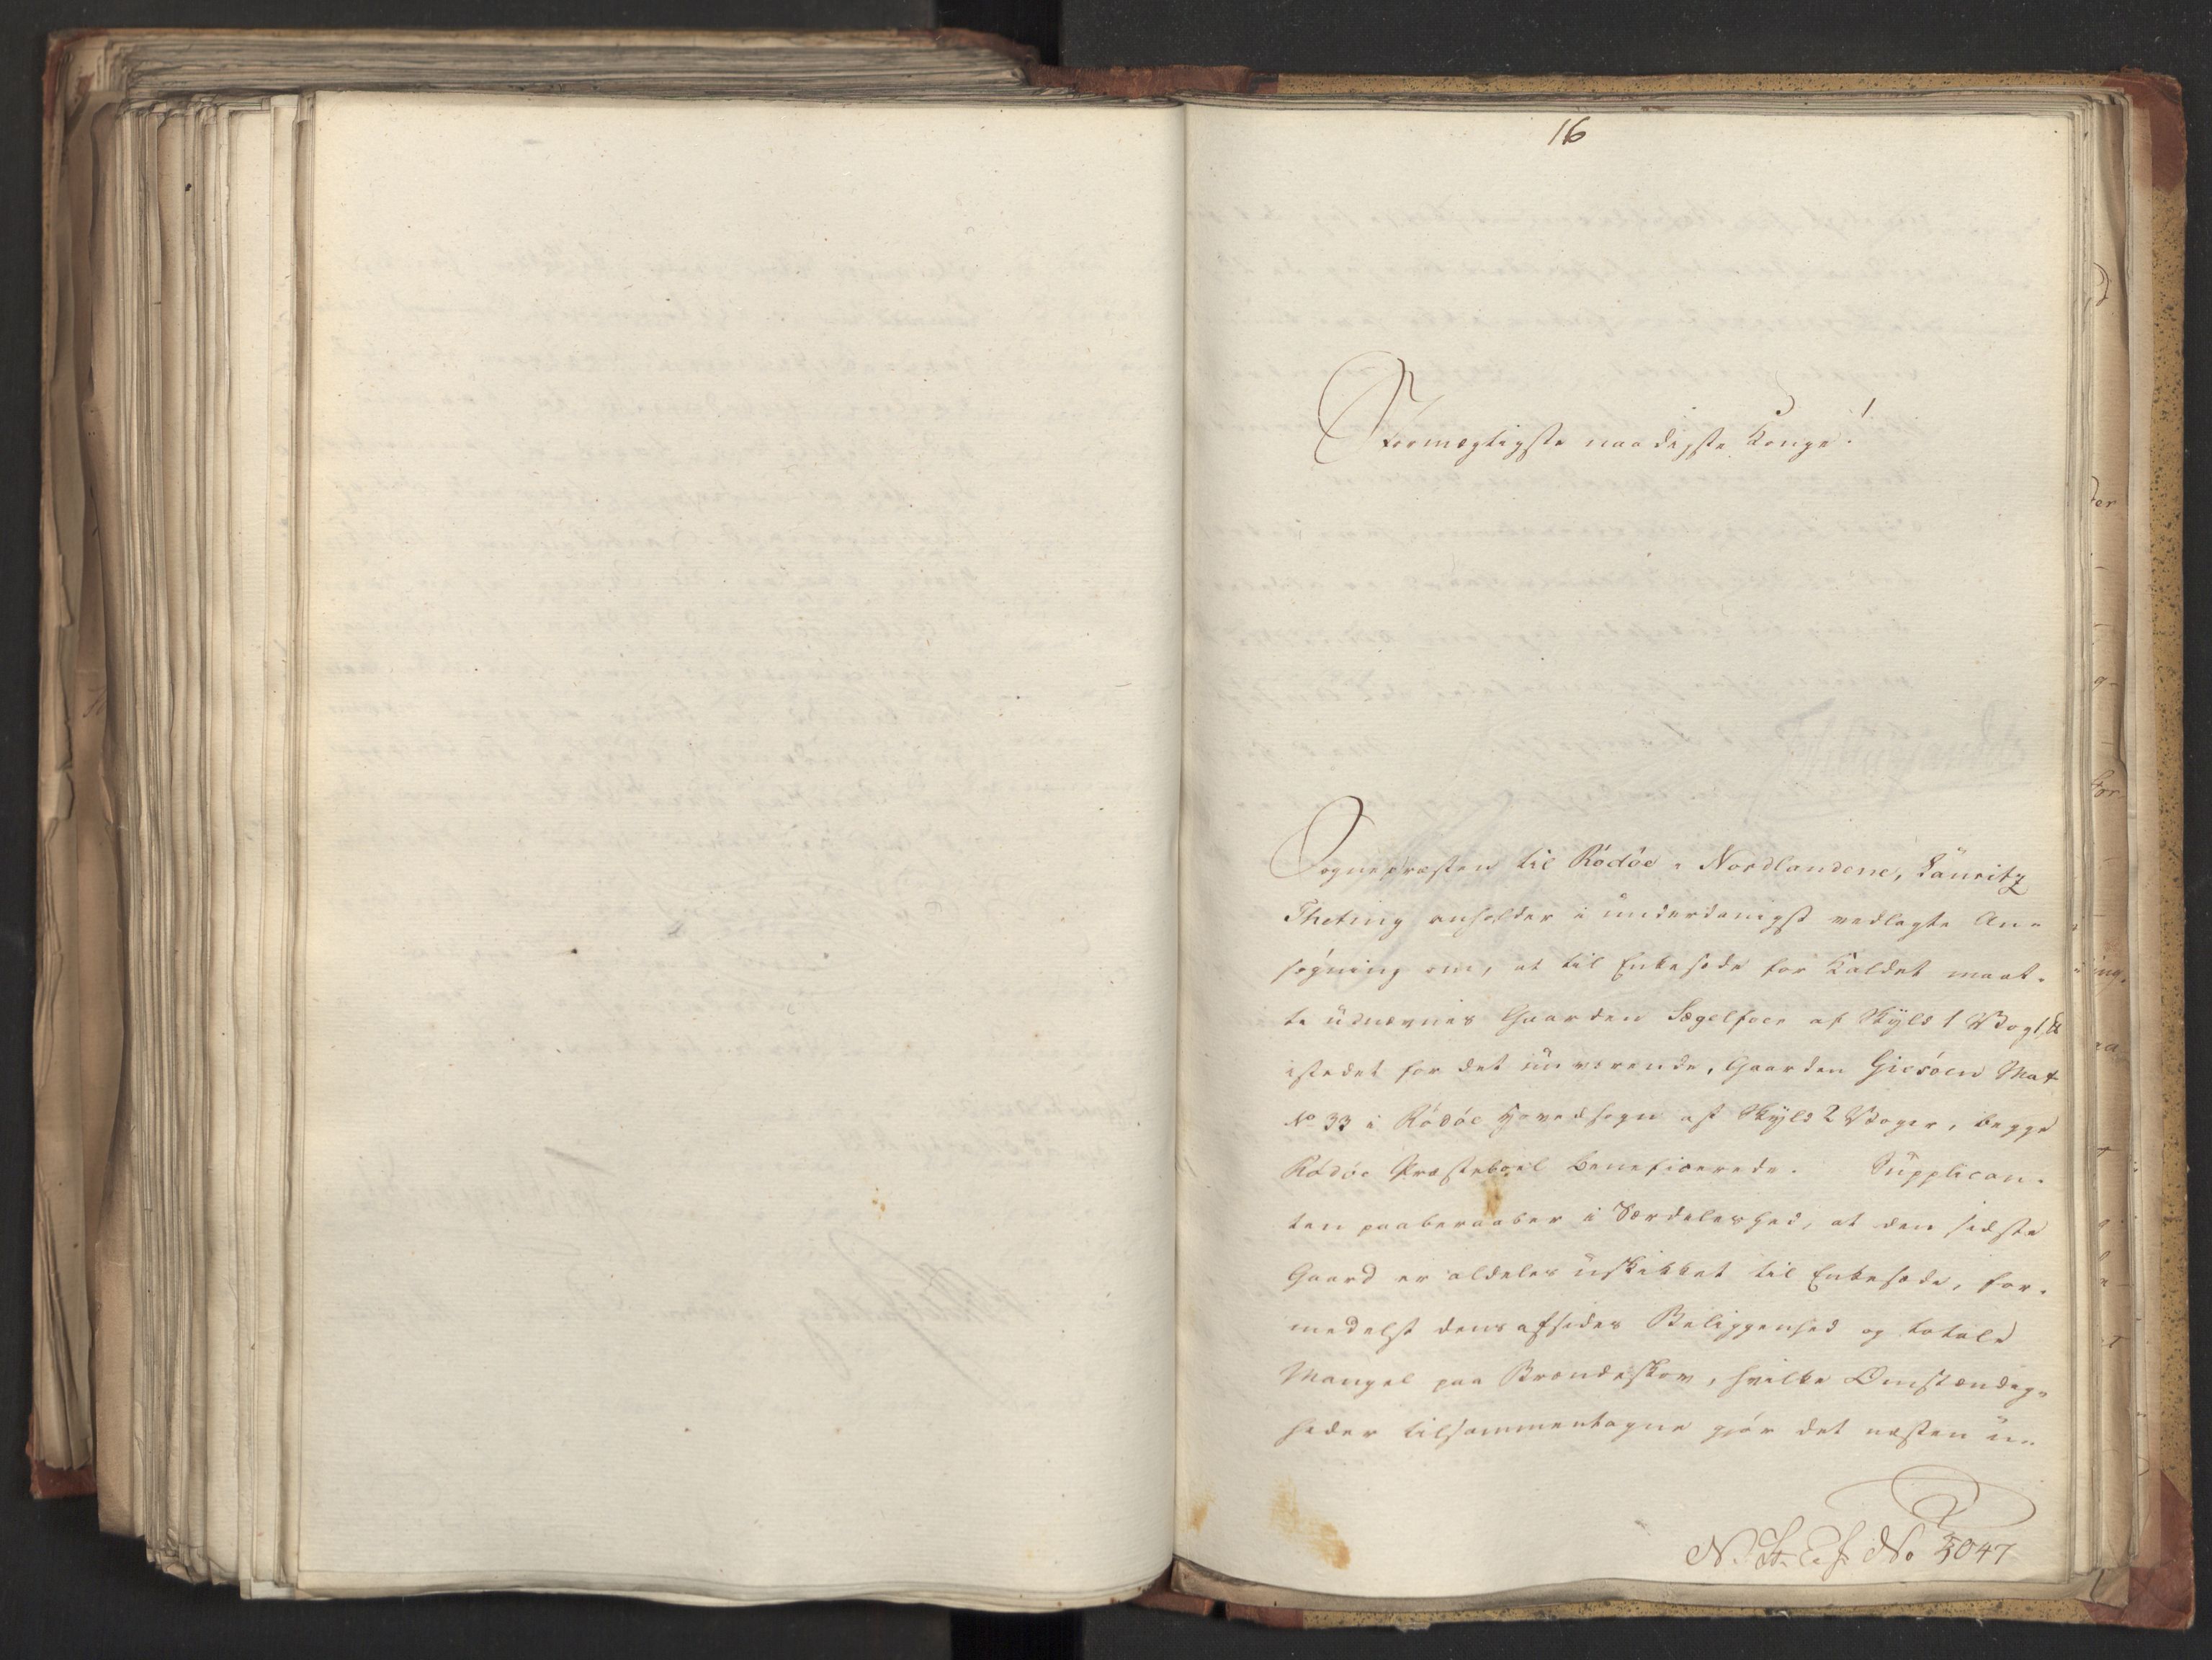 16
Stormægtigste naadigste Konge!
Sognepræsten til Rödöe i Nordlandene, Lauritz
Theting anholder i underdanigst vedlagte An-
søgning om, at til Enkesæde for Kaldet maat-
te udnævnes Gaarden Segelfore af Skyld 1 Vog 1
istedet for det nuværende, Gaarden Giesöen Mat
No 33 i Rödöe Hovedsogn af Skyld 2 Voger, begge
Rödöe Præstebol beneficerede. Supplican-
ten paaberaaber i Særdeleshed, at den sidste
Gaard er aldeles uskikket til Enkesæde, for-
medelst dens afsides Beliggenhed og totale
Mangel paa Brændeskov, hvilke Omstændig-
heder tilsammentagne gjør det næsten u-
N. St. E. f. No 5047